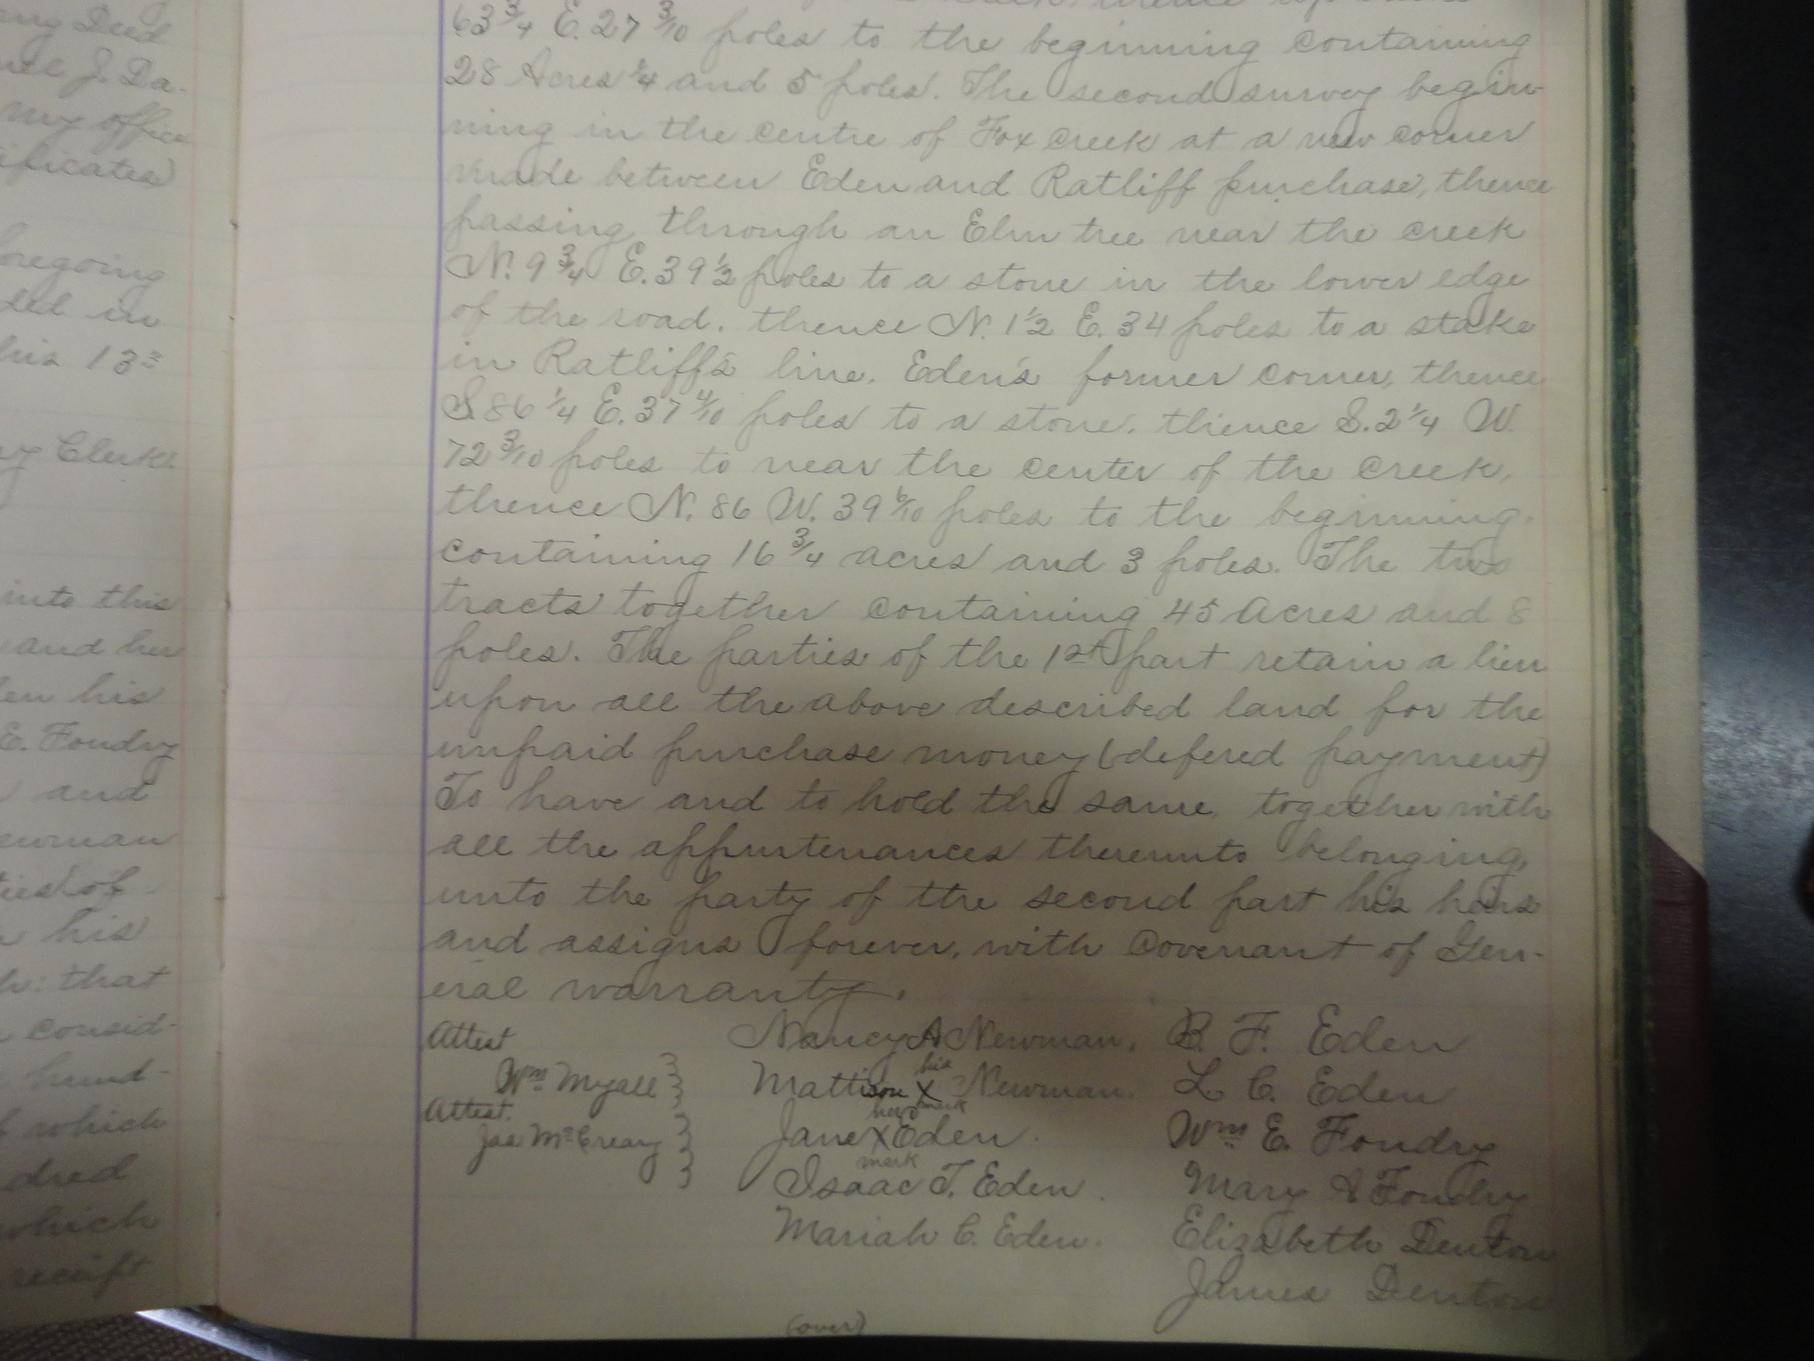 ing Deed
J. Da-
my office
ificates)
foregoing
ded in
his 13=
Clerk.
into this
and her
his
E. Foudry
and
ewman
ties of
his
h: that
consid-
hund-
of which
dred
which
receipt
63 3/4 E. 27 3/10 poles to the beginning containing
28 Acres 1/4 and 5 poles. The second survey begin-
ning in the centre of Fox creek at a new corner
made between Eden and Ratliff purchase, thence
passing through an Elm tree near the creek
N. 9 3/4 E. 39 1/2 poles to a stone in the lower edge
of the road. thence N. 1 1/2 E. 34 poles to a stake
in Ratliff's line. Eden's former corner, thence
S. 86 1/4 E. 37 4/10 poles to a stone. thence S. 2 1/4 W.
72 3/10 poles to near the center of the creek,
thence N. 86 W. 39 6/10 poles to the beginning.
containing 16 3/4 acres and 3 poles. The two
tracts together containing 45 Acres and 8
poles. The parties of the 1st part retain a lien
upon all the above described land for the
unpaid purchase money (defered payment)
To have and to hold the same together with
all the appurtenances thereunto belonging,
unto the party of the second part his heirs
and assigns forever, with Covenant of Gen-
eral warranty.
Attest Nancy A Newman. B. F. Eden
his
Wm Myall } Mattison X Newman. L. C. Eden
mark
Attest. her
Jas McCreary } Jane X Eden. Wm E. Foudry
mark
Isaac T. Eden. Mary A Foudry
Mariah C. Eden. Elizabeth Denton
James Denton
(over)